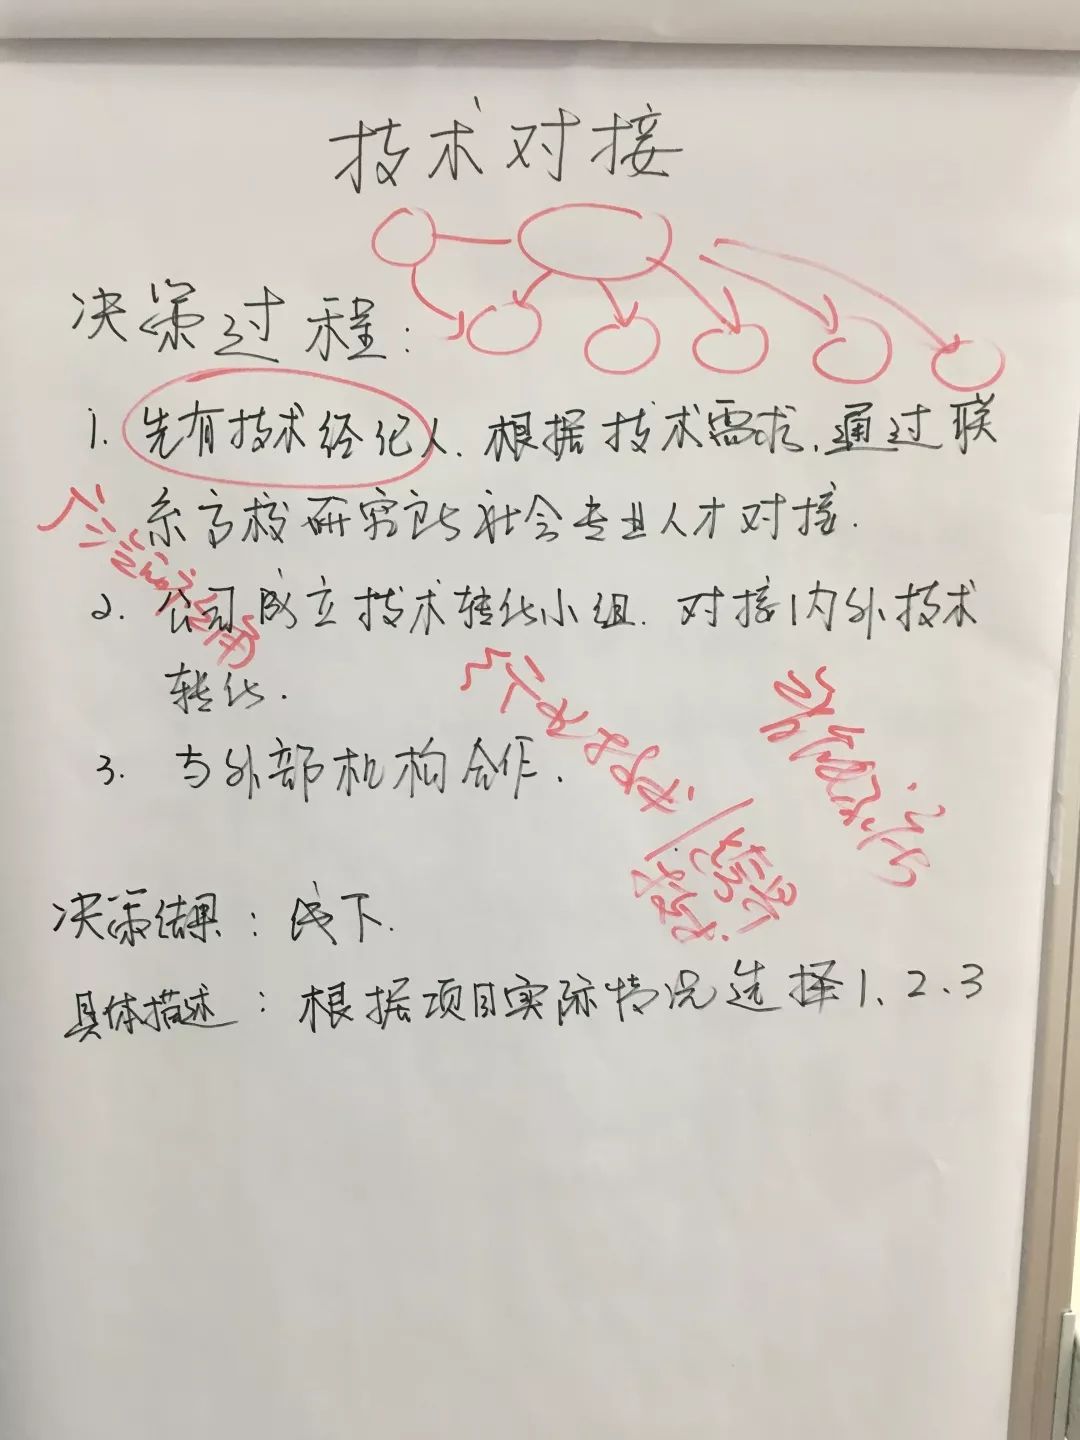 技术对接
决策过程:
1. 先有技术经纪人. 根据技术需求, 通过联
系高校研究院社会专业人才对接.
2. 公司成立技术转化小组. 对接内外技术
转化.
3. 与外部机构合作.
决策结果: 线下.
具体描述: 根据项目实际情况选择1、2、3